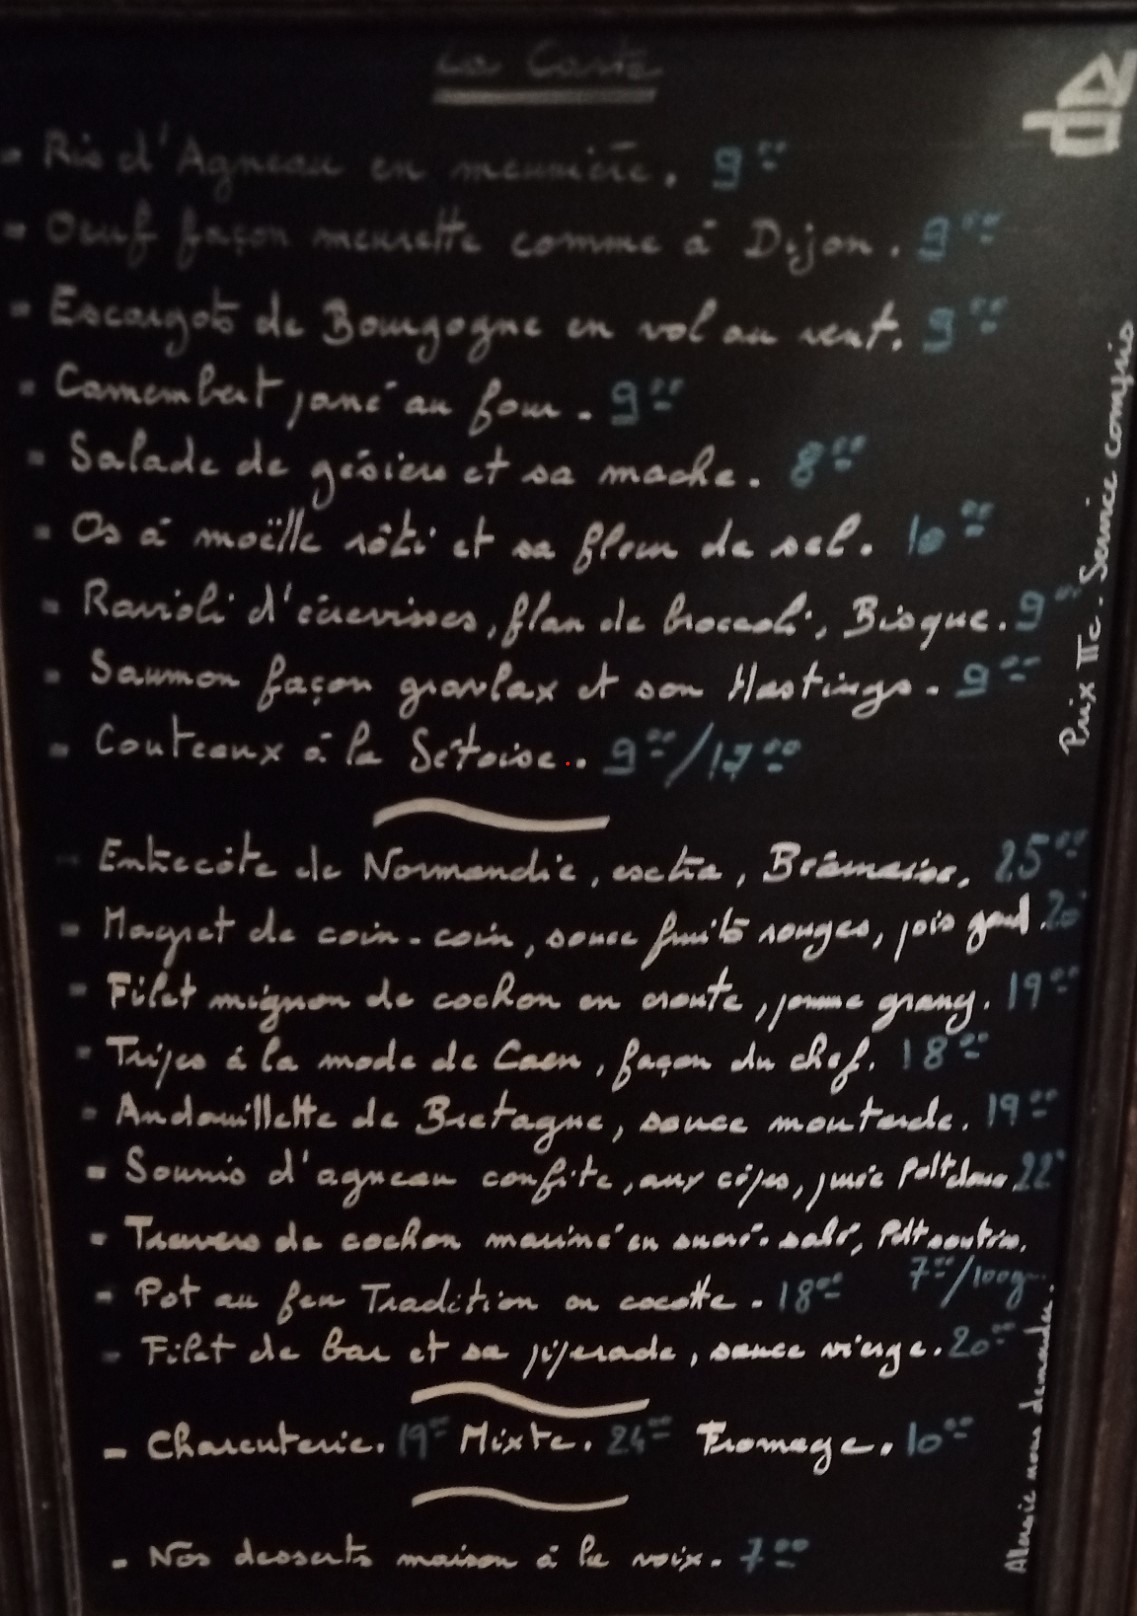 La Carte
- Ris d'Agneau en meunière. 9.00
- Oeuf façon meurette comme à Dijon. 9.00
- Escargots de Bourgogne en vol au vent. 9.00
- Camembert pané au four. 9.00
- Salade de gésiers et sa mache. 8.00
- Os à moëlle rôti et sa fleur de sel. 10.00
- Ravioli d'écrevisses, flan de broccoli, Bisque. 9.00
- Saumon façon gravlax et son Hastings. 9.00
- Couteaux à la Sétoise. 9.00/17.00
- Entrecôte de Normandie, extra, Béarnaise. 25.00
- Magret de coin-coin, sauce fruits rouges, pois gourd. 20
- Filet mignon de cochon en croute, pomme grany. 19.00
- Tripes à la mode de Caen, façon du chef. 18.00
- Andouillette de Bretagne, sauce moutarde. 19.00
- Souris d'agneau confite, aux cèpes, purée Patt douce. 22
- Travers de cochon mariné en sucré-salé, Patt sautées.
7.00/100g
- Pot au feu Tradition en cocotte. 18.00
- Filet de bar et sa piperade, sauce vierge. 20.00
- Charcuterie. 19.00 Mixte. 24.00 Fromage. 10.00
- Nos desserts maison à la voix. 7.00
Prix TTC. Service compris
Allergie nous demander.